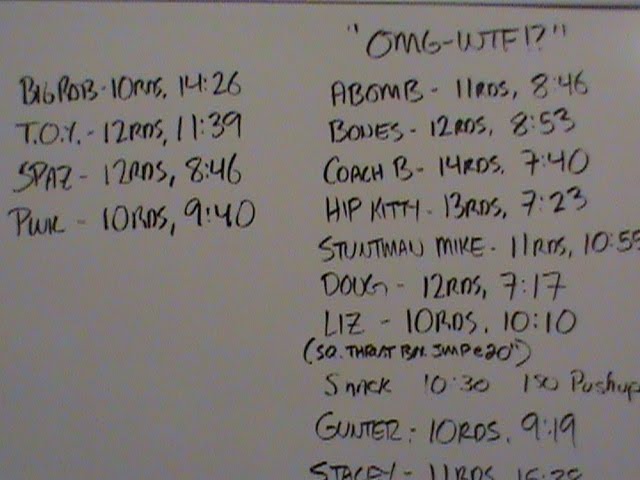 "OMG-WTF!?"
BIG ROB - 10RDS, 14:26
T.O.Y. - 12RDS, 11:39
SPAZ - 12RDS, 8:46
PWK - 10RDS, 9:40
ABOMB - 11RDS, 8:46
BONES - 12RDS, 8:53
COACH B - 14RDS. 7:40
HIP KITTY - 13RDS, 7:23
STUNTMAN MIKE - 11RDS, 10:55
DOUG - 12RDS, 7:17
LIZ - 10RDS. 10:10
(SQ. THRUST BOX JMP @ 20")
Snack 10:30 150 Pushups
GUNTER - 10RDS. 9:19
STACEY - 11RDS